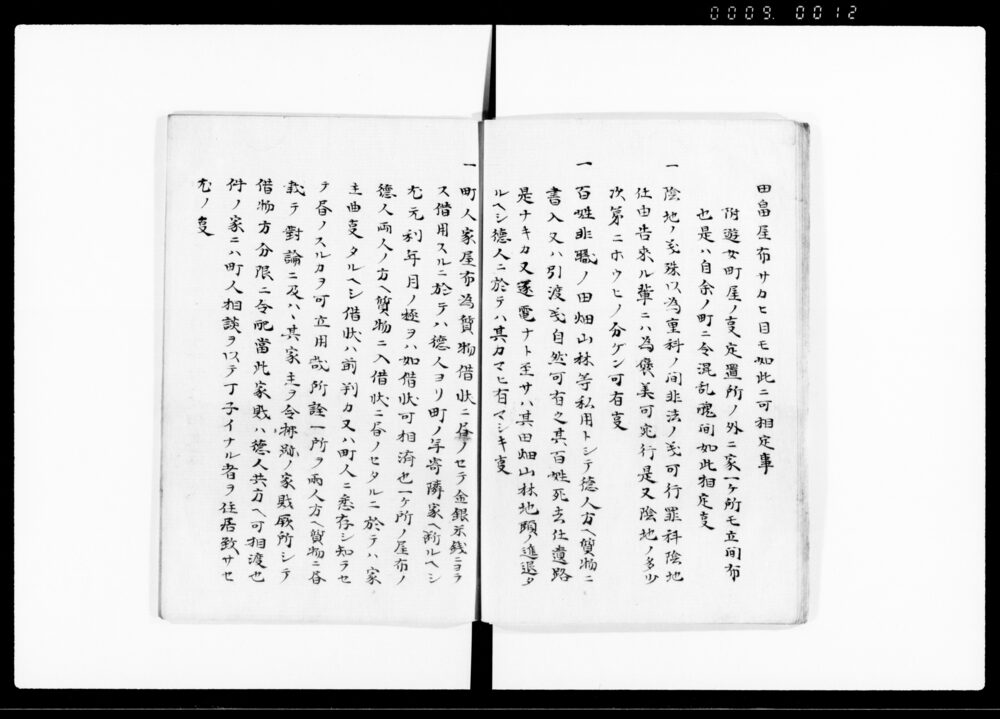 0009. 0012
田畠屋布サカヒ目モ如此ニ可相定事
附遊女町屋ノ叓定置所ノ外ニ家一ケ所モ立間布
也是ハ自余ノ町ニ令混乱 間如此相定叓
一 陰地ノ 殊以為重科ノ間非法ノ 可行罪科陰地
仕由告来ル輩ニハ為褒美可宛行是又陰地ノ多少
次第ニホウヒノ分ゲン可有叓
一 百姓非職ノ田畑山林等私用トシテ徳人方ヘ質物ニ
書入又ハ引渡 自然可有之其百姓死去仕遺路
是ナキカ又逐電ナト至サハ其田畑山林地頭ノ進退タ
ルヘシ徳人ニ於テハ其カマヒ有マシキ叓
一 町人家屋布為質物借状ニ昼ノセテ金銀米銭ニヨラ
ス借用スルニ於テハ徳人ヨリ町ノ年寄隣家ヘ断ルヘシ
尤元利年月ノ極ヲハ如借状可相済也一ケ所ノ屋布ノ
徳人両人ノ方ヘ質物ニ入借状ニ昼ノセタルニ於テハ家
主曲叓タルヘシ借状ハ前判カ又ハ町人ニ悉存シ知ラセ
テ昼ノスルカヲ可立用 所詮一所ヲ両人方ヘ質物ニ昼
載テ対論ニ及ハヽ其家主ヲ令 跡ノ家財厥所シテ
借物方分限ニ令配当此家財ハ徳人共方ヘ可相渡也
件ノ家ニハ町人相談ヲ以テ丁子イナル者ヲ住居致サセ
尤ノ叓